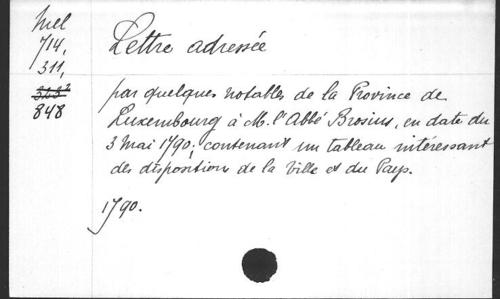 Mel
714,
311,
848
Lettre adressée
par quelques notables de la Province de
Luxembourg à M. l'Abbé Brosius, en date du
3 Mai 1790; contenant un tableau intéressant
des dispositions de la Ville et du Pays.
1790.